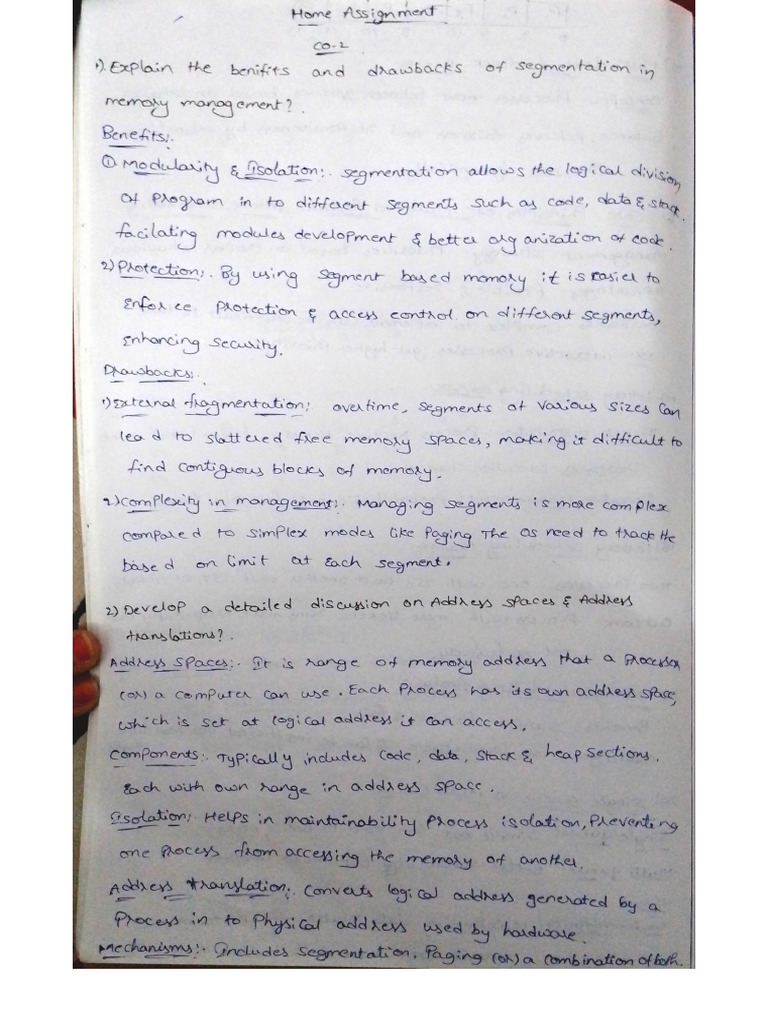 Home Assignment
CO-2
1). Explain the benifits and drawbacks of segmentation in
memory management?.
Benefits:.
① Modularity & Isolation:. segmentation allows the logical division
of program in to different segments such as code, data & stack.
facilating modules development & better organization of code.
2) Protection:. By using segment based memory it is easier to
Enforce protection & access control on different segments,
Enhancing security.
Drawbacks:.
1) External fragmentation: overtime, segments of various sizes can
lead to slattered free memory spaces, making it difficult to
find contiguous blocks of memory.
2) complexity in management:. Managing segments is more complex
compared to simplex modes like Paging The OS need to track the
based on limit at Each segment.
2) Develop a detailed discussion on Address spaces & Address
translations?.
Address Spaces:. It is range of memory address that a Processor
(or) a computer can use. Each Process has its own address space,
which is set at logical address it can access.
Components:. Typically includes code, data, stack & heap sections.
Each with own range in address space.
Isolation: Helps in maintainability process isolation, Preventing
one process from accessing the memory of another.
Address translation:. converts logical address generated by a
Process in to Physical address used by hardware.
Mechanisms:. includes segmentation, Paging (or) a combination of both.